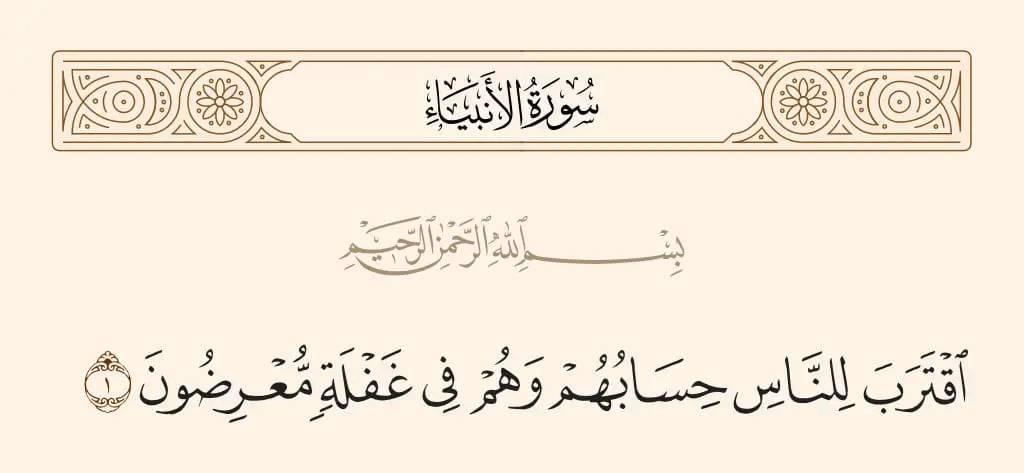 سُورَةُ الأَنبِيَاءِ
بِسْمِ ٱللَّهِ ٱلرَّحْمَٰنِ ٱلرَّحِيمِ
ٱقْتَرَبَ لِلنَّاسِ حِسَابُهُمْ وَهُمْ فِى غَفْلَةٍ مُّعْرِضُونَ ١